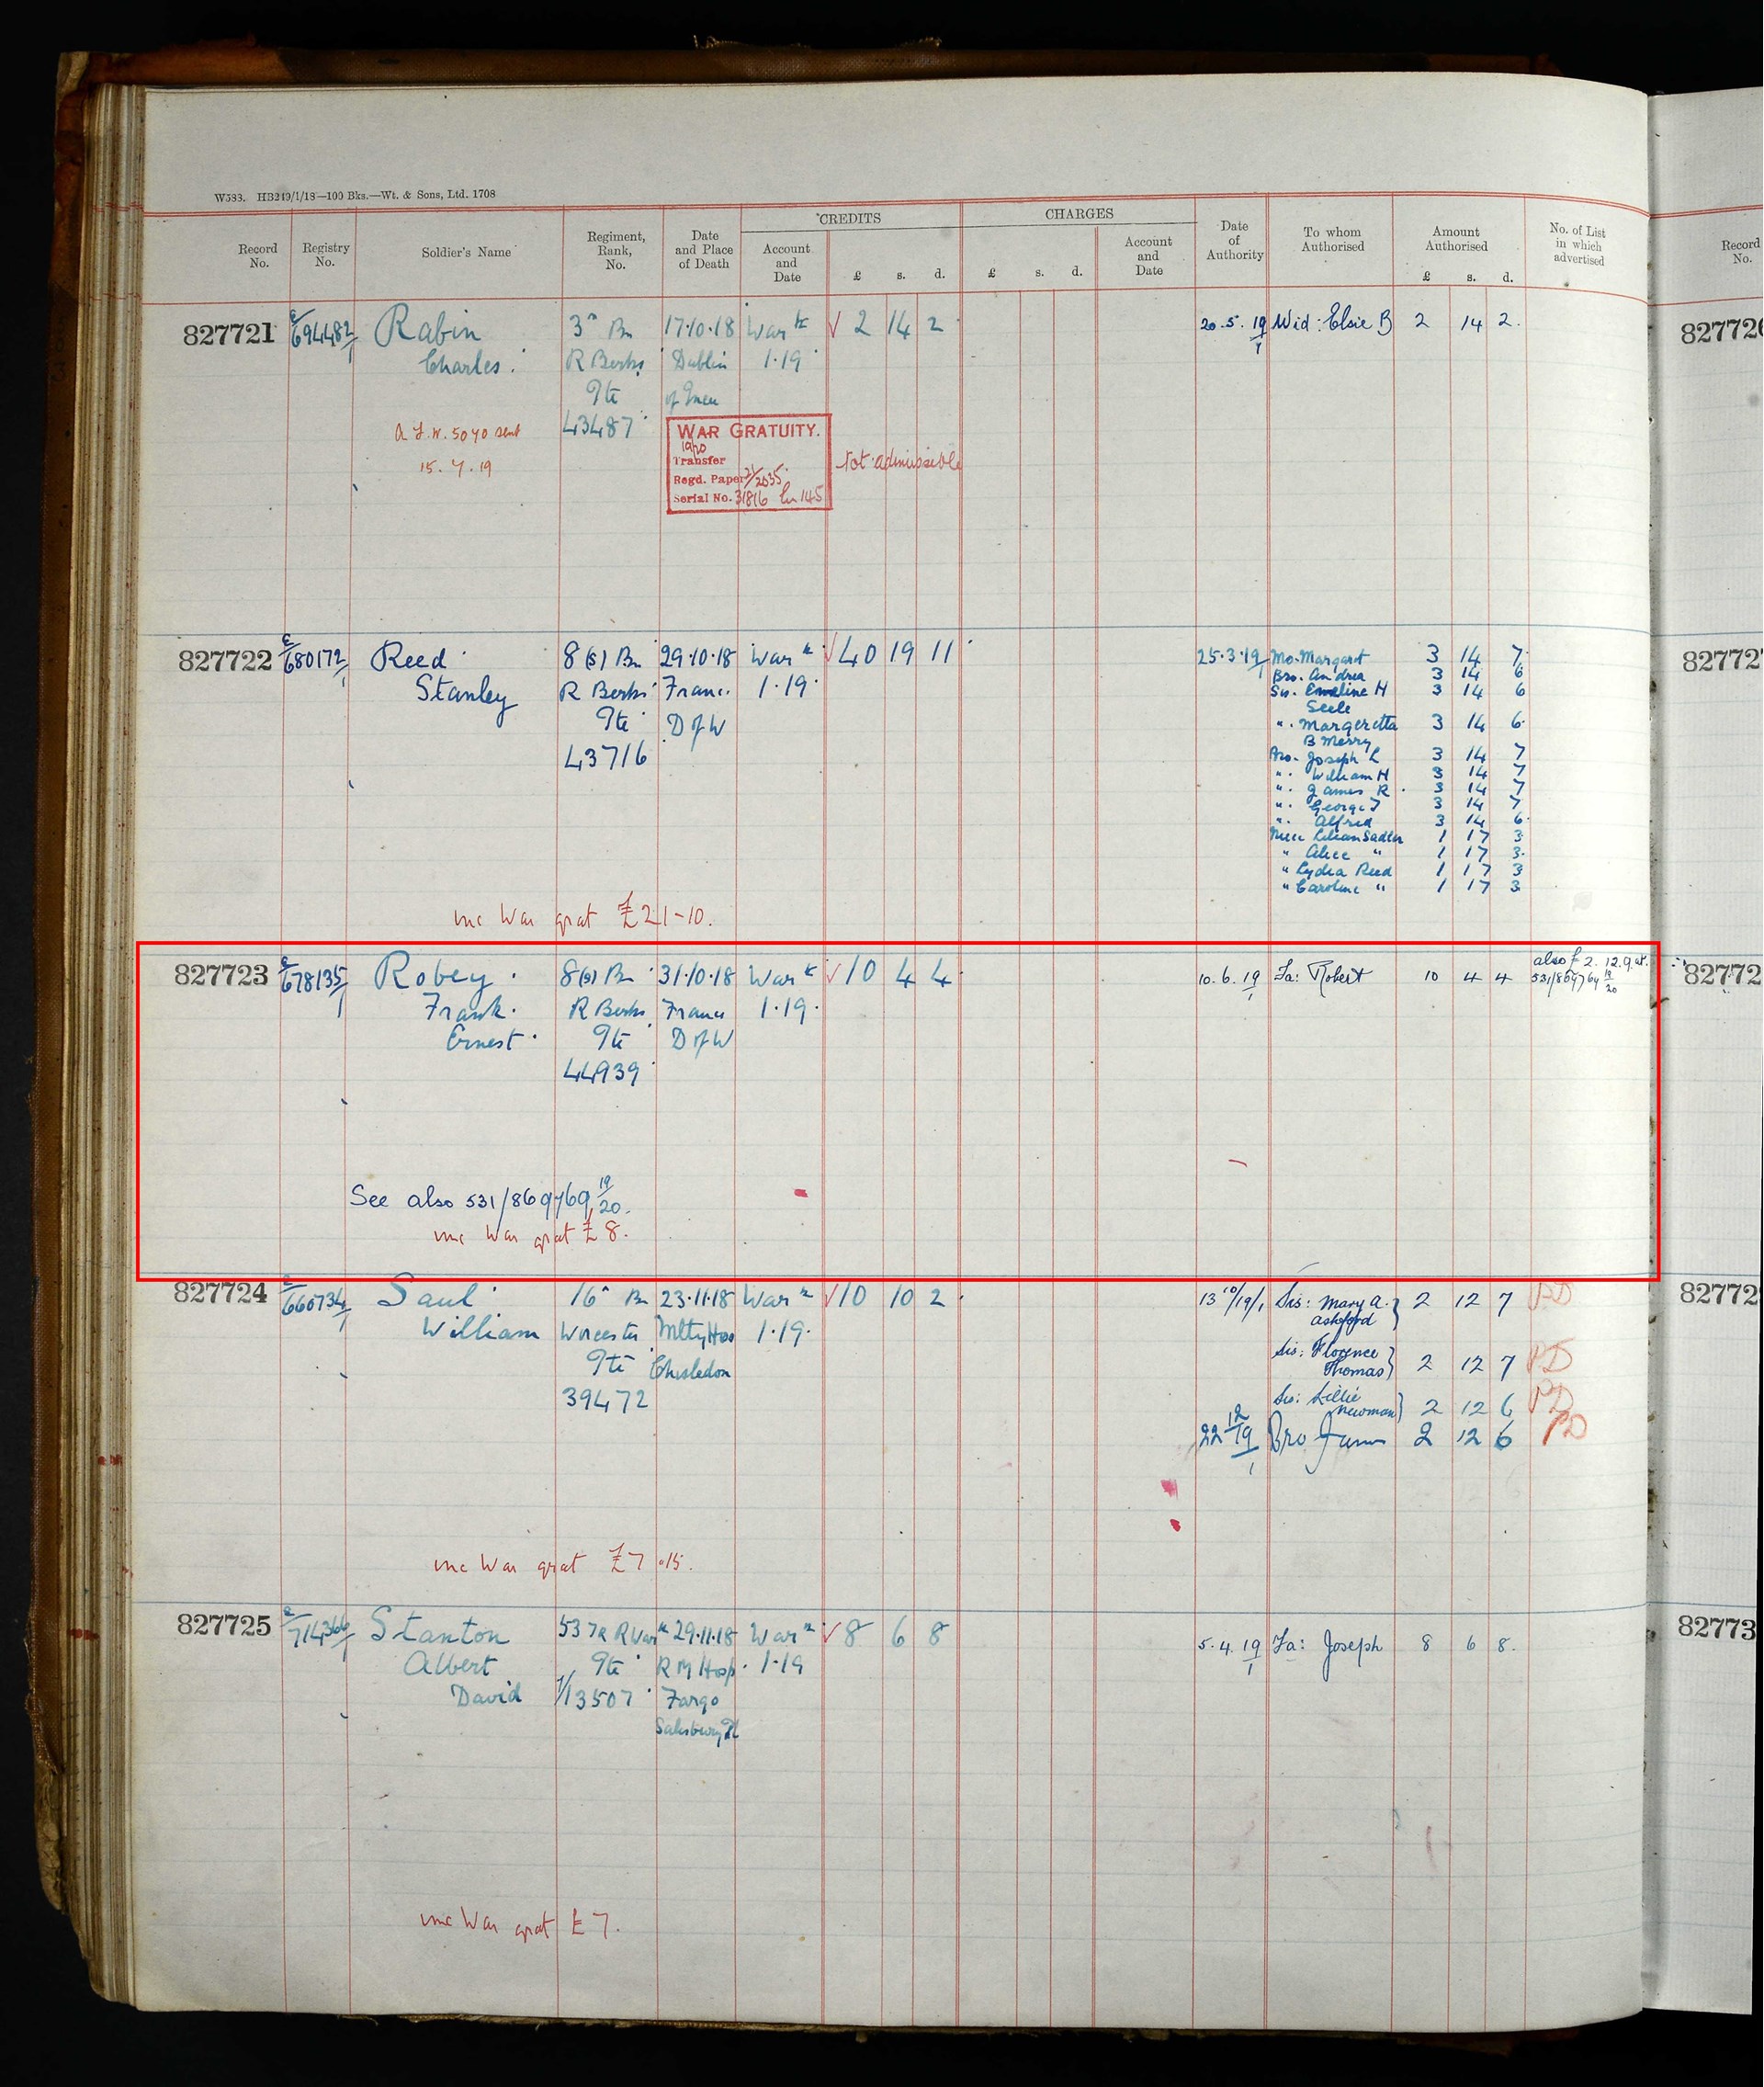 W583. HB249/1/18—100 Bks.—Wt. & Sons, Ltd. 1708
CREDITS CHARGES
Record No. Registry No. Soldier's Name Regiment, Rank, No. Date and Place of Death Account and Date £ s. d. £ s. d. Account and Date Date of Authority To whom Authorised Amount Authorised £ s. d. No. of List in which advertised Record No.
827721 E/694482/1 Rabin 3rd Bn 17.10.18 War k 2 14 2 20.5.19 Wid: Elsie B 2 14 2. 827726
Charles. R Berks Dublin 1.19
Pte
43487
A.F.W. 5070 sent
15.7.19
WAR GRATUITY.
1920
Transfer Not admissible
Regd. Paper 21/2035
Serial No. 31816
827722 E/680172/1 Reed 8(S) Bn 29.10.18 War k 40 19 11 25.3.19 Mo. Margaret 3 14 7 82772
Bro. Andrea 3 14 6
Stanley R Berks Franc. 1.19. Sis. Emeline H 3 14 6
Seele
Pte D of W ". Margeretta 3 14 6
B Merry
43716 Bro. Joseph L 3 14 7
". William H 3 14 7
". James R. 3 14 7
". George T 3 14 7
". Alfred 3 14 6
Niece Lilian Sadler 1 17 3
" Alice " 1 17 3
" Lydia Reed 1 17 3
" Caroline " 1 17 3
inc War grat £21-10.
also £2.12.9 at
827723 E/678135/1 Robey 8(S) Bn 31.10.18 War k 10 4 4 10.6.19 Fa: Robert 10 4 4 531/869769 19/20 82772
Frank. R Berks France 1.19.
Ernest Pte D of W
44939
See also 531/869769 19/20.
inc War grat £8.
827724 E/660734/1 Saul 16th Bn 23.11.18 War k 10 10 2 13 10/19/1 Sis: Mary A. Ashford 2 12 7 PD 82772
William Worcester Mlty Hos 1.19. Sis: Florence Thomas 2 12 7 PD
Pte Chisledon
39472 Sis: Lillie Newman 2 12 6 PD
22 12/19 Bro James 2 12 6 PD
inc War grat £7.15.
827725 Stanton 53 YR R War k 29.11.18 War k 8 6 8 5.4.19 Fa: Joseph 8 6 8. 82773
Albert Pte R M Hosp. 1.19
David 13507 Fargo
Salisbury Pl
inc War grat £7.